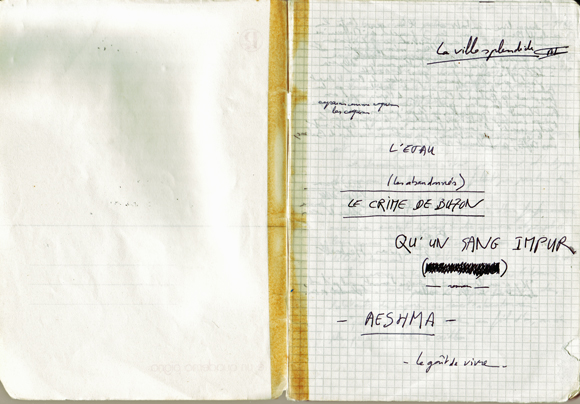 La ville splendide III
L'ETAU
(les abandonnés)
LE CRIME DE BUZON
QU'UN SANG IMPUR
— roman —
- AESHMA -
- le goût de vivre -